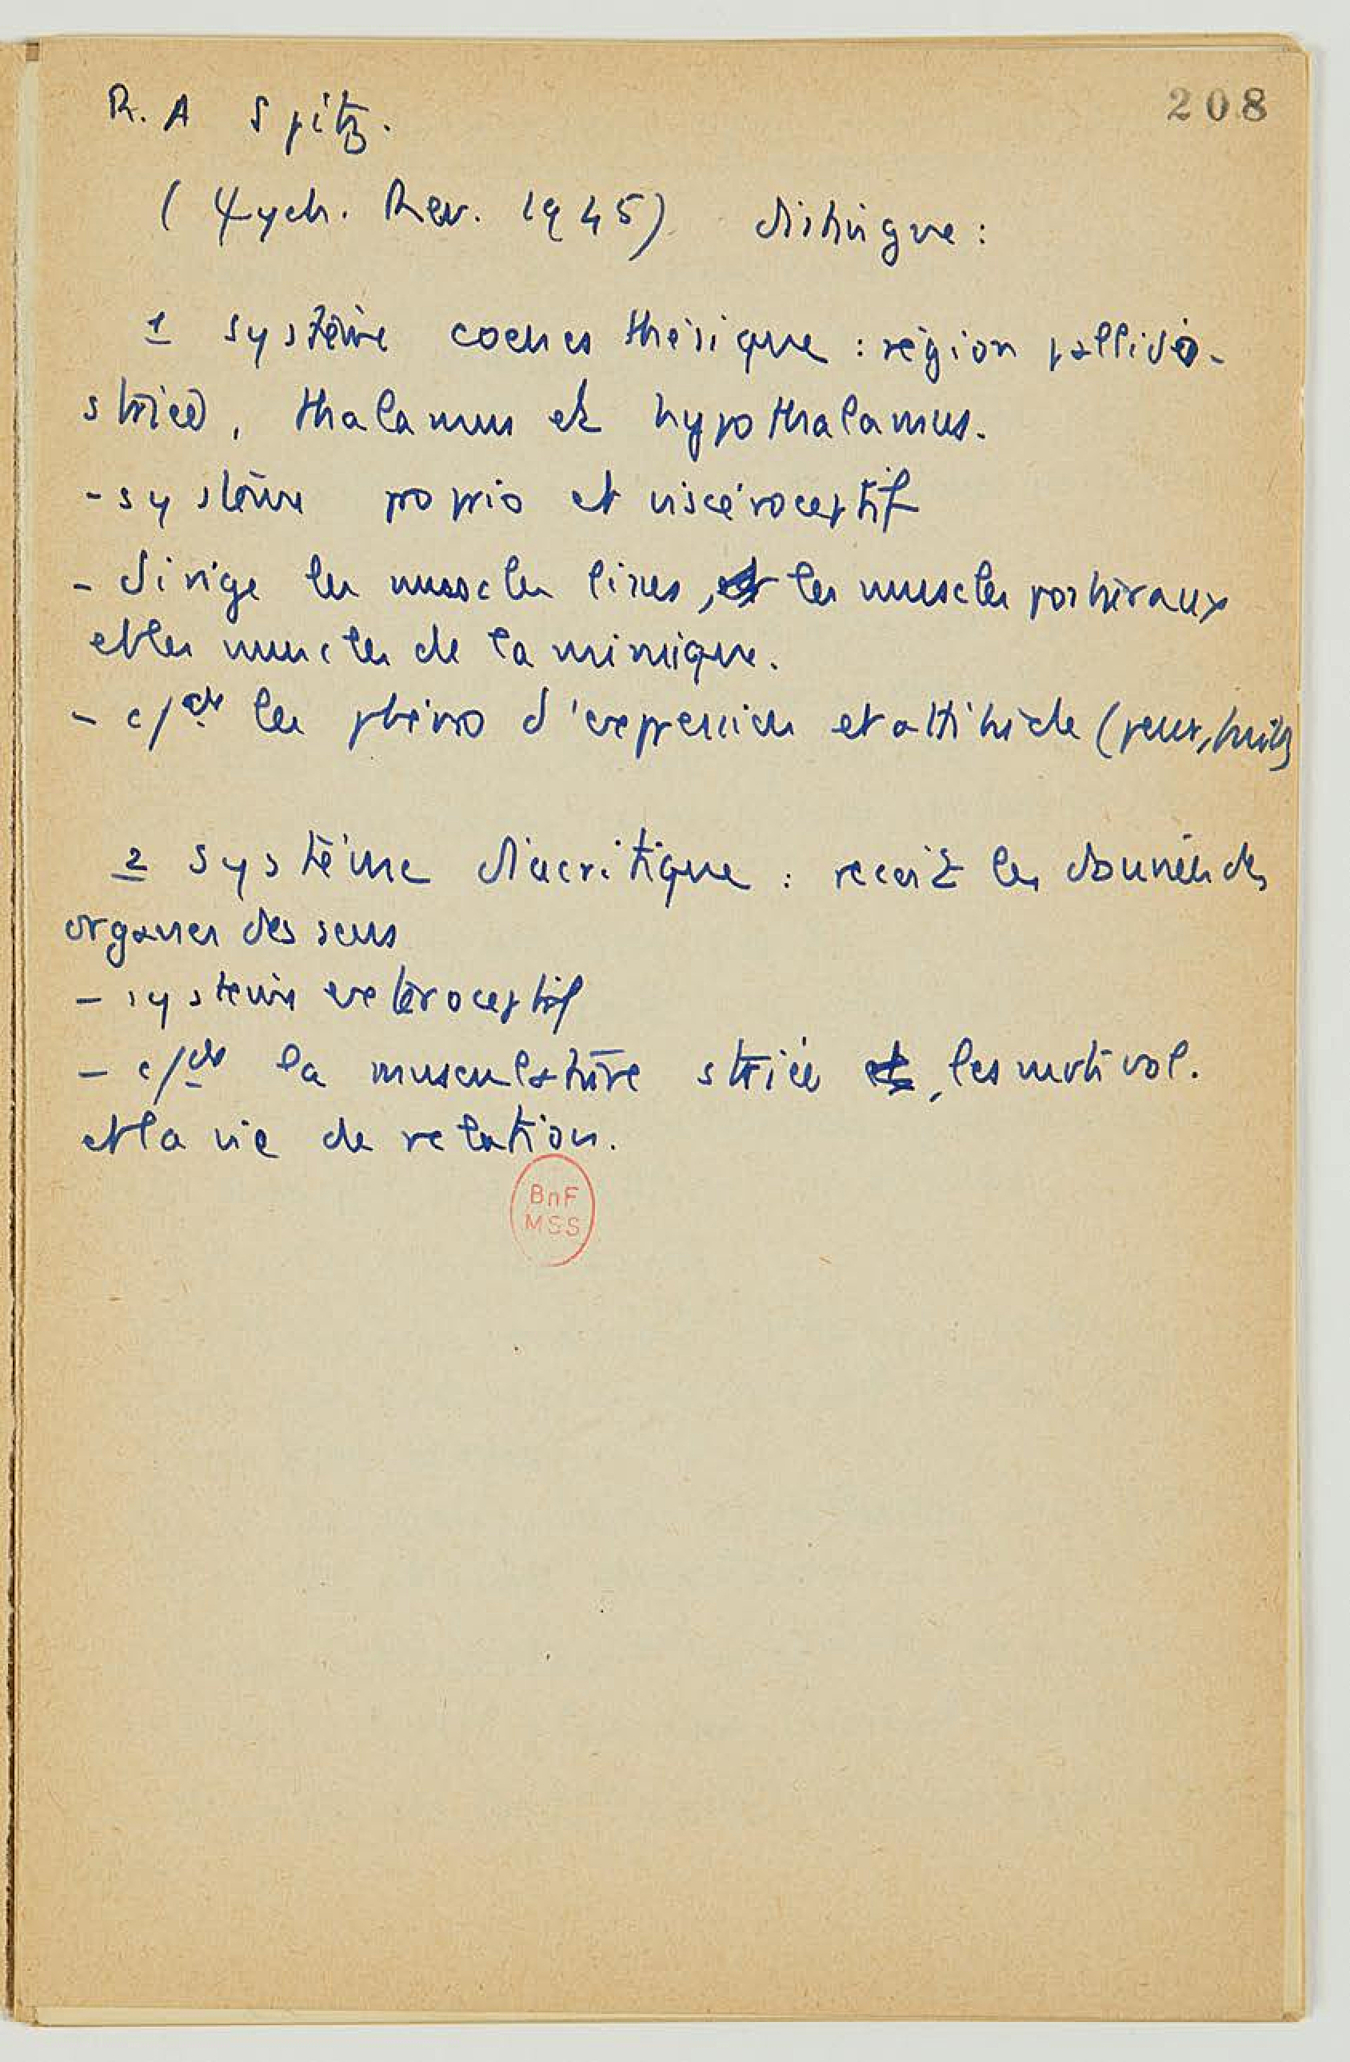 208
R. A Spitz.
(Ψych. Rev. 1945) distingue :
1 système coenesthésique : région pallido-
striée, thalamus et hypothalamus.
- système proprio et viscéroceptif
- dirige les muscles lisses, les muscles posturaux
et les muscles de la mimique.
- c/de les phéno d'expression et attitude (peur,
2 système diacritique : reçoit les données des
organes des sens
- système extéroceptif
- c/de la musculature striée, les mvts vol.
et la vie de relation.
BnF
MSS